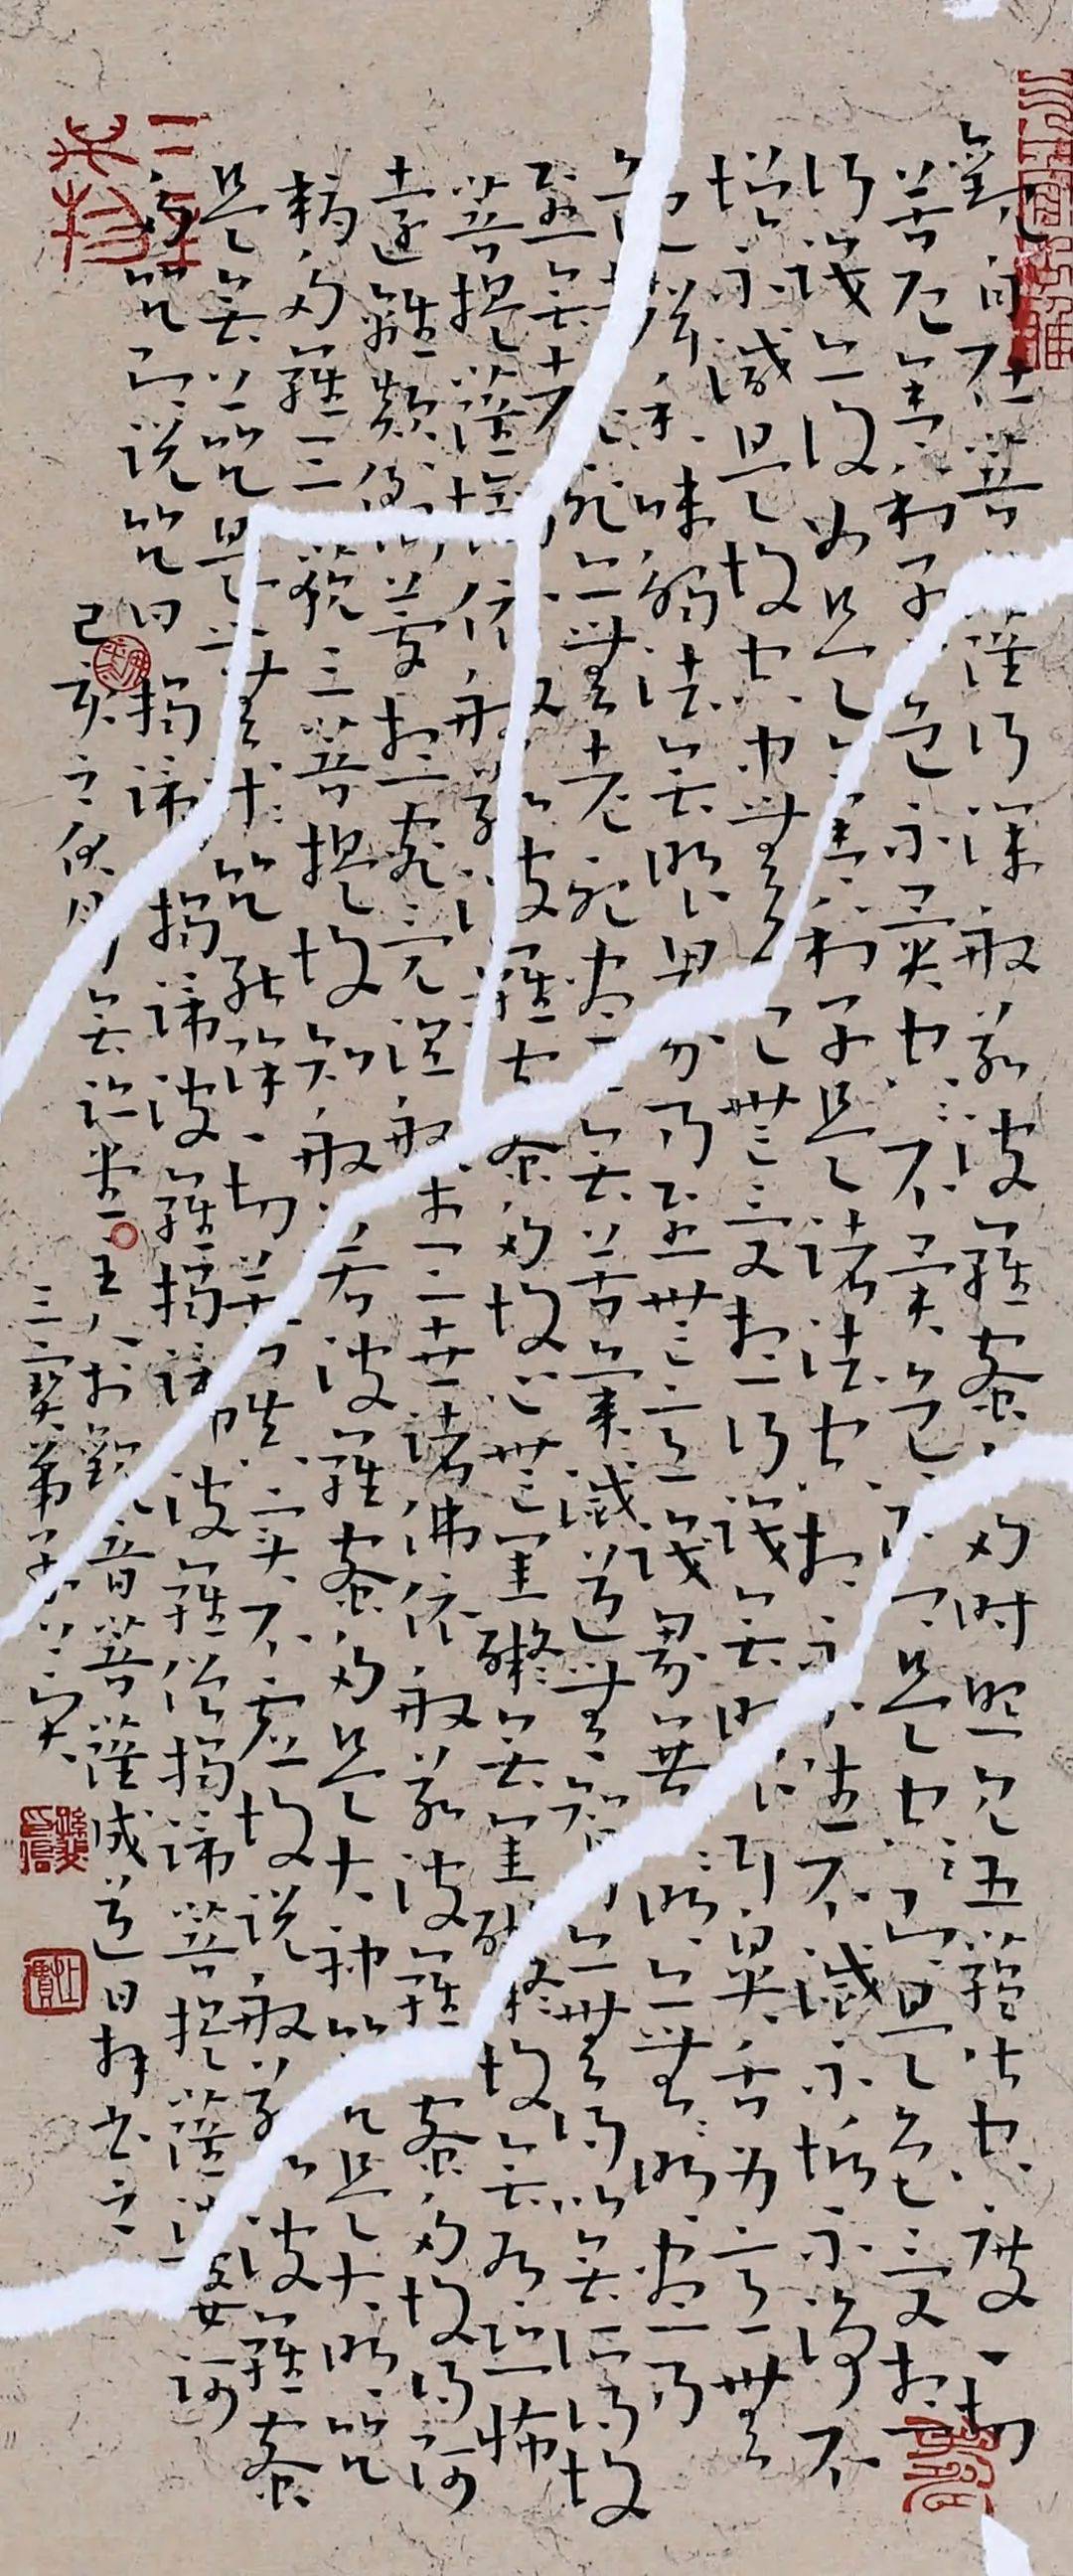 觀自在菩薩行深般若波羅蜜多時照見五蘊皆空度一切
苦厄舍利子色不異空〻不異色〻是空〻即是色受想
行識亦復如是舍利子是諸法空想不生不滅不垢不淨不
增不減是故空中無色無受想行識無眼耳鼻舌身意無
色聲香味觸法無眼界乃至無意識界無〻明亦無〻明盡乃
至無老死亦無老死盡無苦集滅道無智亦無得以無所得故
菩提薩埵依般若波羅蜜多故心無罣礙無罣礙故無有恐怖
遠離顛倒夢想究竟涅槃三世諸佛依般若波羅蜜多故得阿
耨多羅三藐三菩提故知般若波羅蜜多是大神咒是大明咒
是無上咒是無等〻咒能除一切苦真實不虛故說般若波羅蜜
多咒即說咒曰揭諦揭諦波羅揭諦波羅僧揭諦菩提薩婆訶
己亥之秋月 觀音菩薩成道日拜書之
三寶弟子